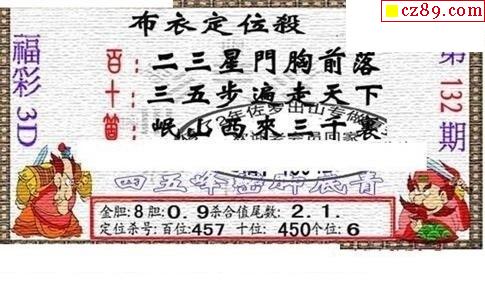 cz89.com
布衣定位殺
福彩3D
第132期
百：二三星門胸前落
十：三五步遍走天下
個：岷山西來三千裏
金胆:8胆:0.9杀合值尾数:2.1.
定位杀号:百位:457 十位:450个位:6